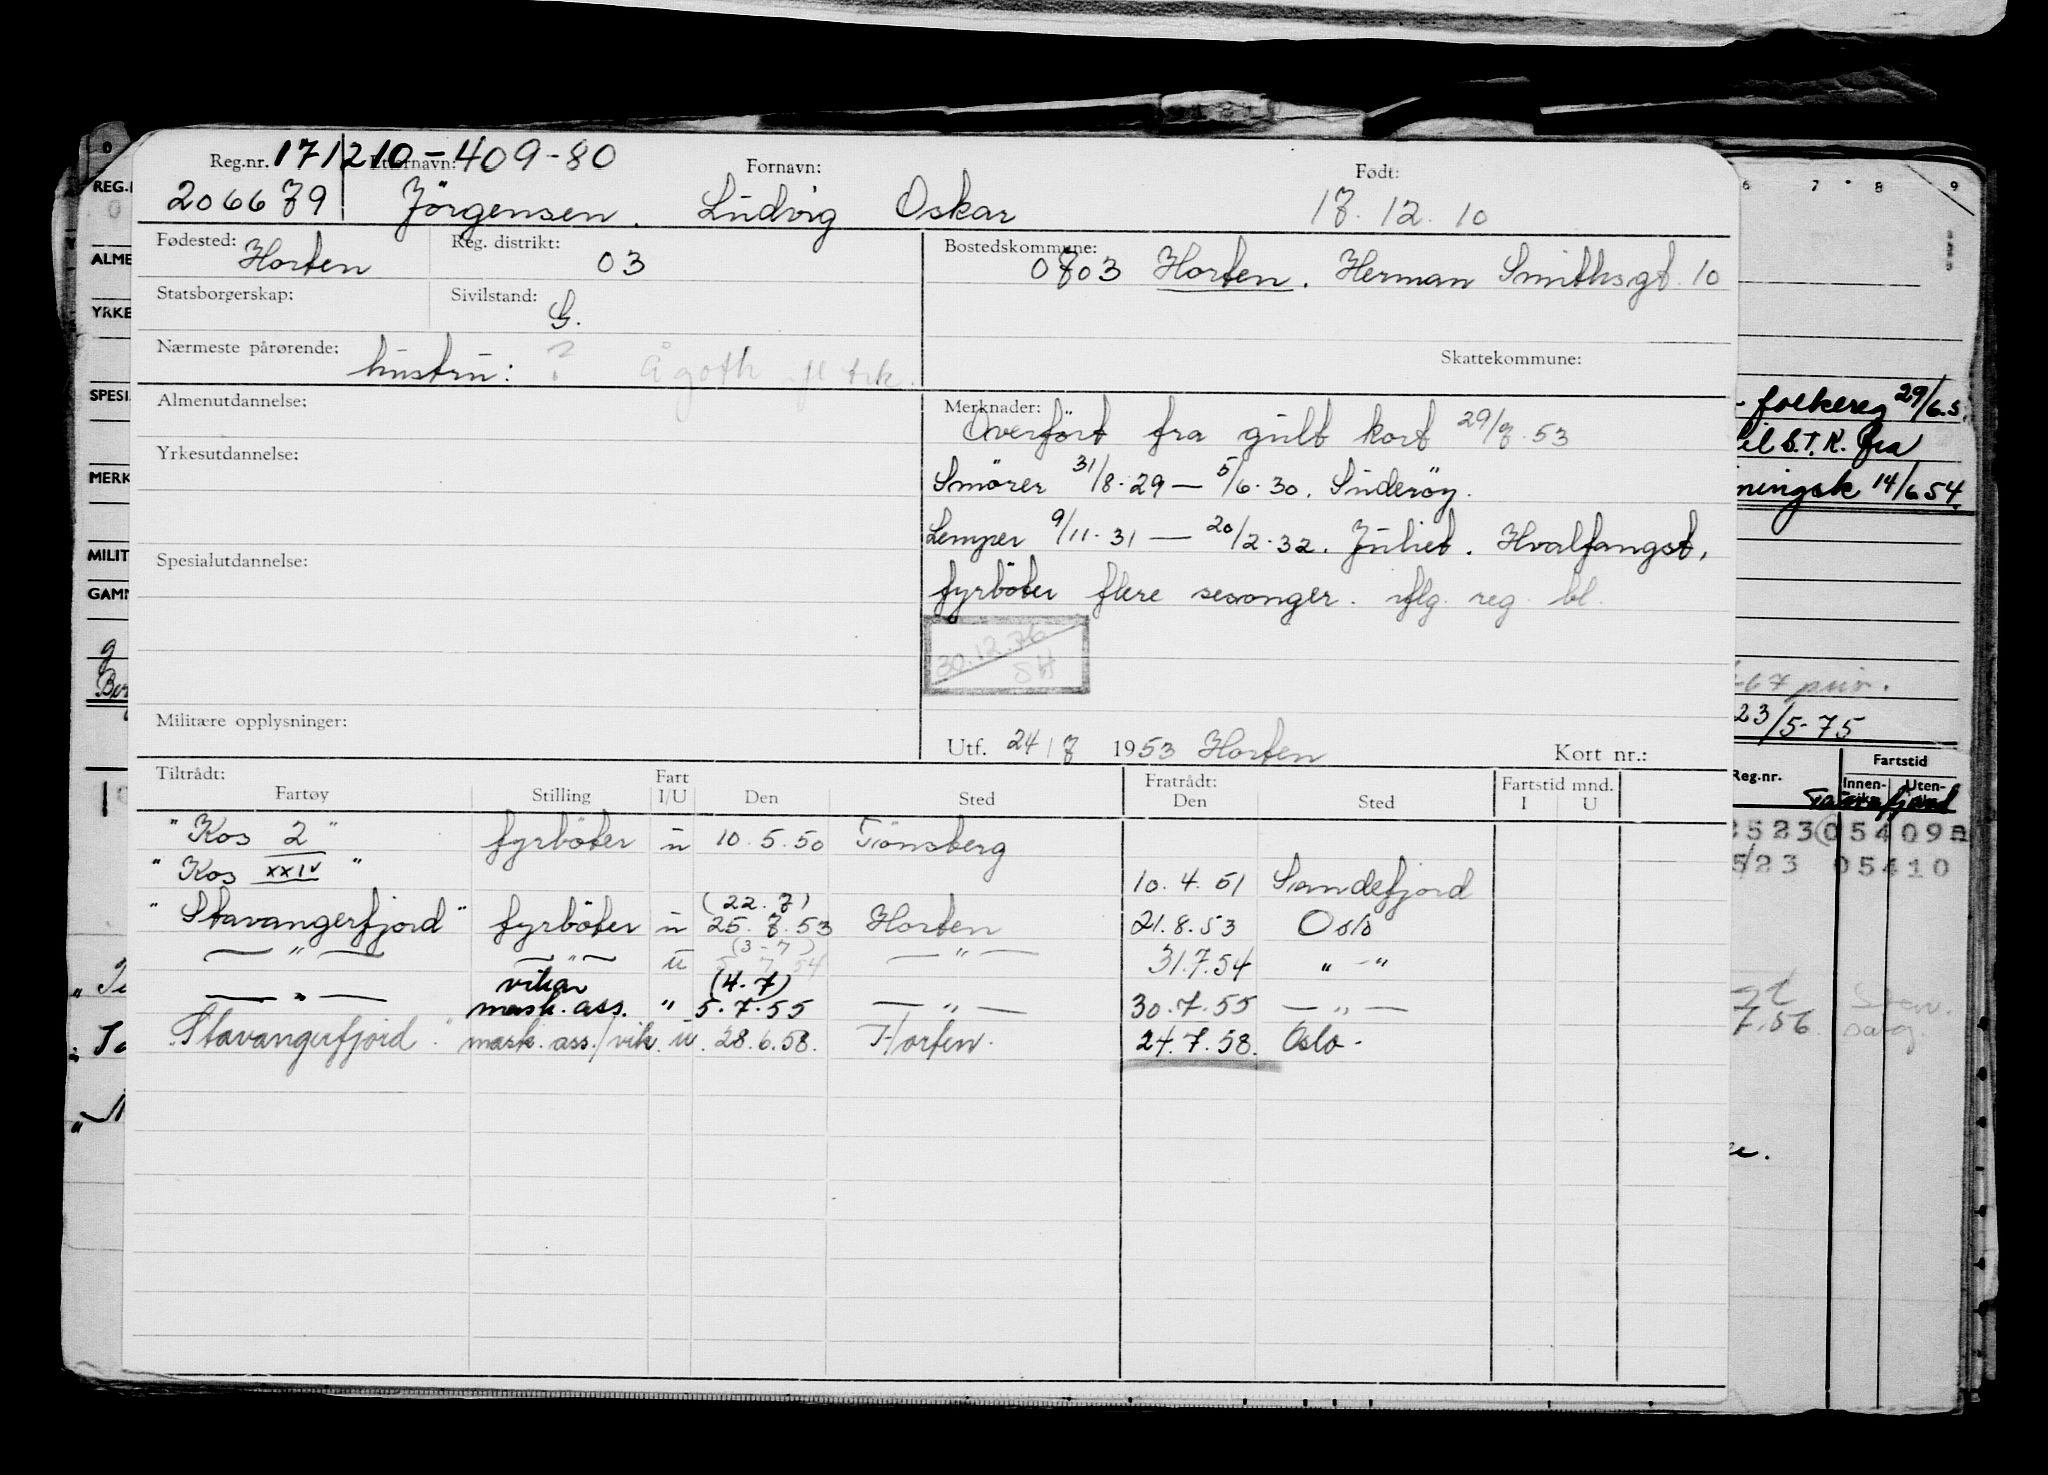 Reg.nr. 171210-409-80 Etternavn: Fornavn: Født:
2066679 Jörgensen. Ludvig Oskar 17.12.10
Fødested: Horten Reg. distrikt: 03 Bostedskommune: 0703 Horten. Herman Smithsgt. 10
Statsborgerskap: Sivilstand: G.
Nærmeste pårørende: hustru: ? Ågoth Skattekommune:
Almenutdannelse: Merknader: Overfört fra gult kort 29/7.53
Yrkesutdannelse: Smörer 31/8.29 — 5/6.30. Suderöy.
Lemper 9/11.31 — 20/2.32. Juliet. Hvalfangst,
Spesialutdannelse: fyrböter flere sesonger. iflg. reg. bl.
30.12.76
SH
Militære opplysninger: Utf. 24/7 1953 Horten Kort nr.:
Tiltrådt: Fart Fratrådt: Fartstid mnd.
Fartøy Stilling I/U Den Sted Den Sted I U
"Kos 2" fyrböter u 10.5.50 Tönsberg
"Kos XXIV" 10.4.51 Sandefjord
(22.7)
"Stavangerfjord" fyrböter u 25.7.53 Horten 21.8.53 Oslo
(3-7)
— " — — " — u 5.7.54 — " — 31.7.54 " - "
vikar (4.7)
— " — mask. ass. " 5.7.55 — " — 30.7.55 — " —
"Stavangerfjord" mask. ass./vik. u. 28.6.58. Horten. 24.7.58. Oslo.
REG.
ALME
YRKE
SPESI
MERK
MILIT
GAMM
6 7 8 9
folkereg 29/6.5.
til S.T.K. fra
14/6 54.
-67
23/5-75
Reg.nr. Fartstid
Innen- Uten-
2523 05409
523 05410
7.56